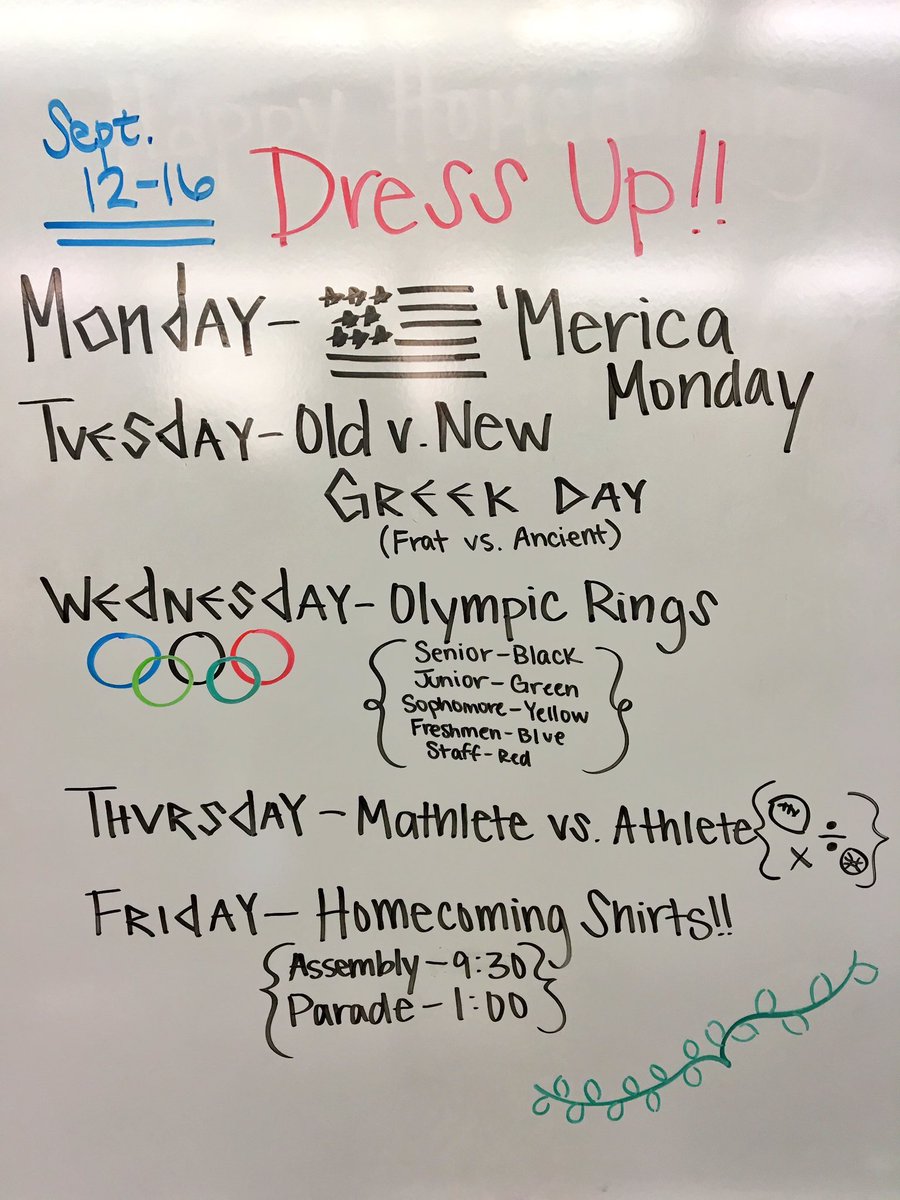 Happy Homecoming
Sept.
12-16
Dress Up!!
Monday- 'Merica
Monday
Tuesday- Old v. New
Greek Day
(Frat vs. Ancient)
Wednesday- Olympic Rings
Senior-Black
Junior-Green
Sophomore-Yellow
Freshmen-Blue
Staff-Red
Thursday - Mathlete vs. Athlete
x ÷
Friday- Homecoming Shirts!!
Assembly-9:30
Parade-1:00